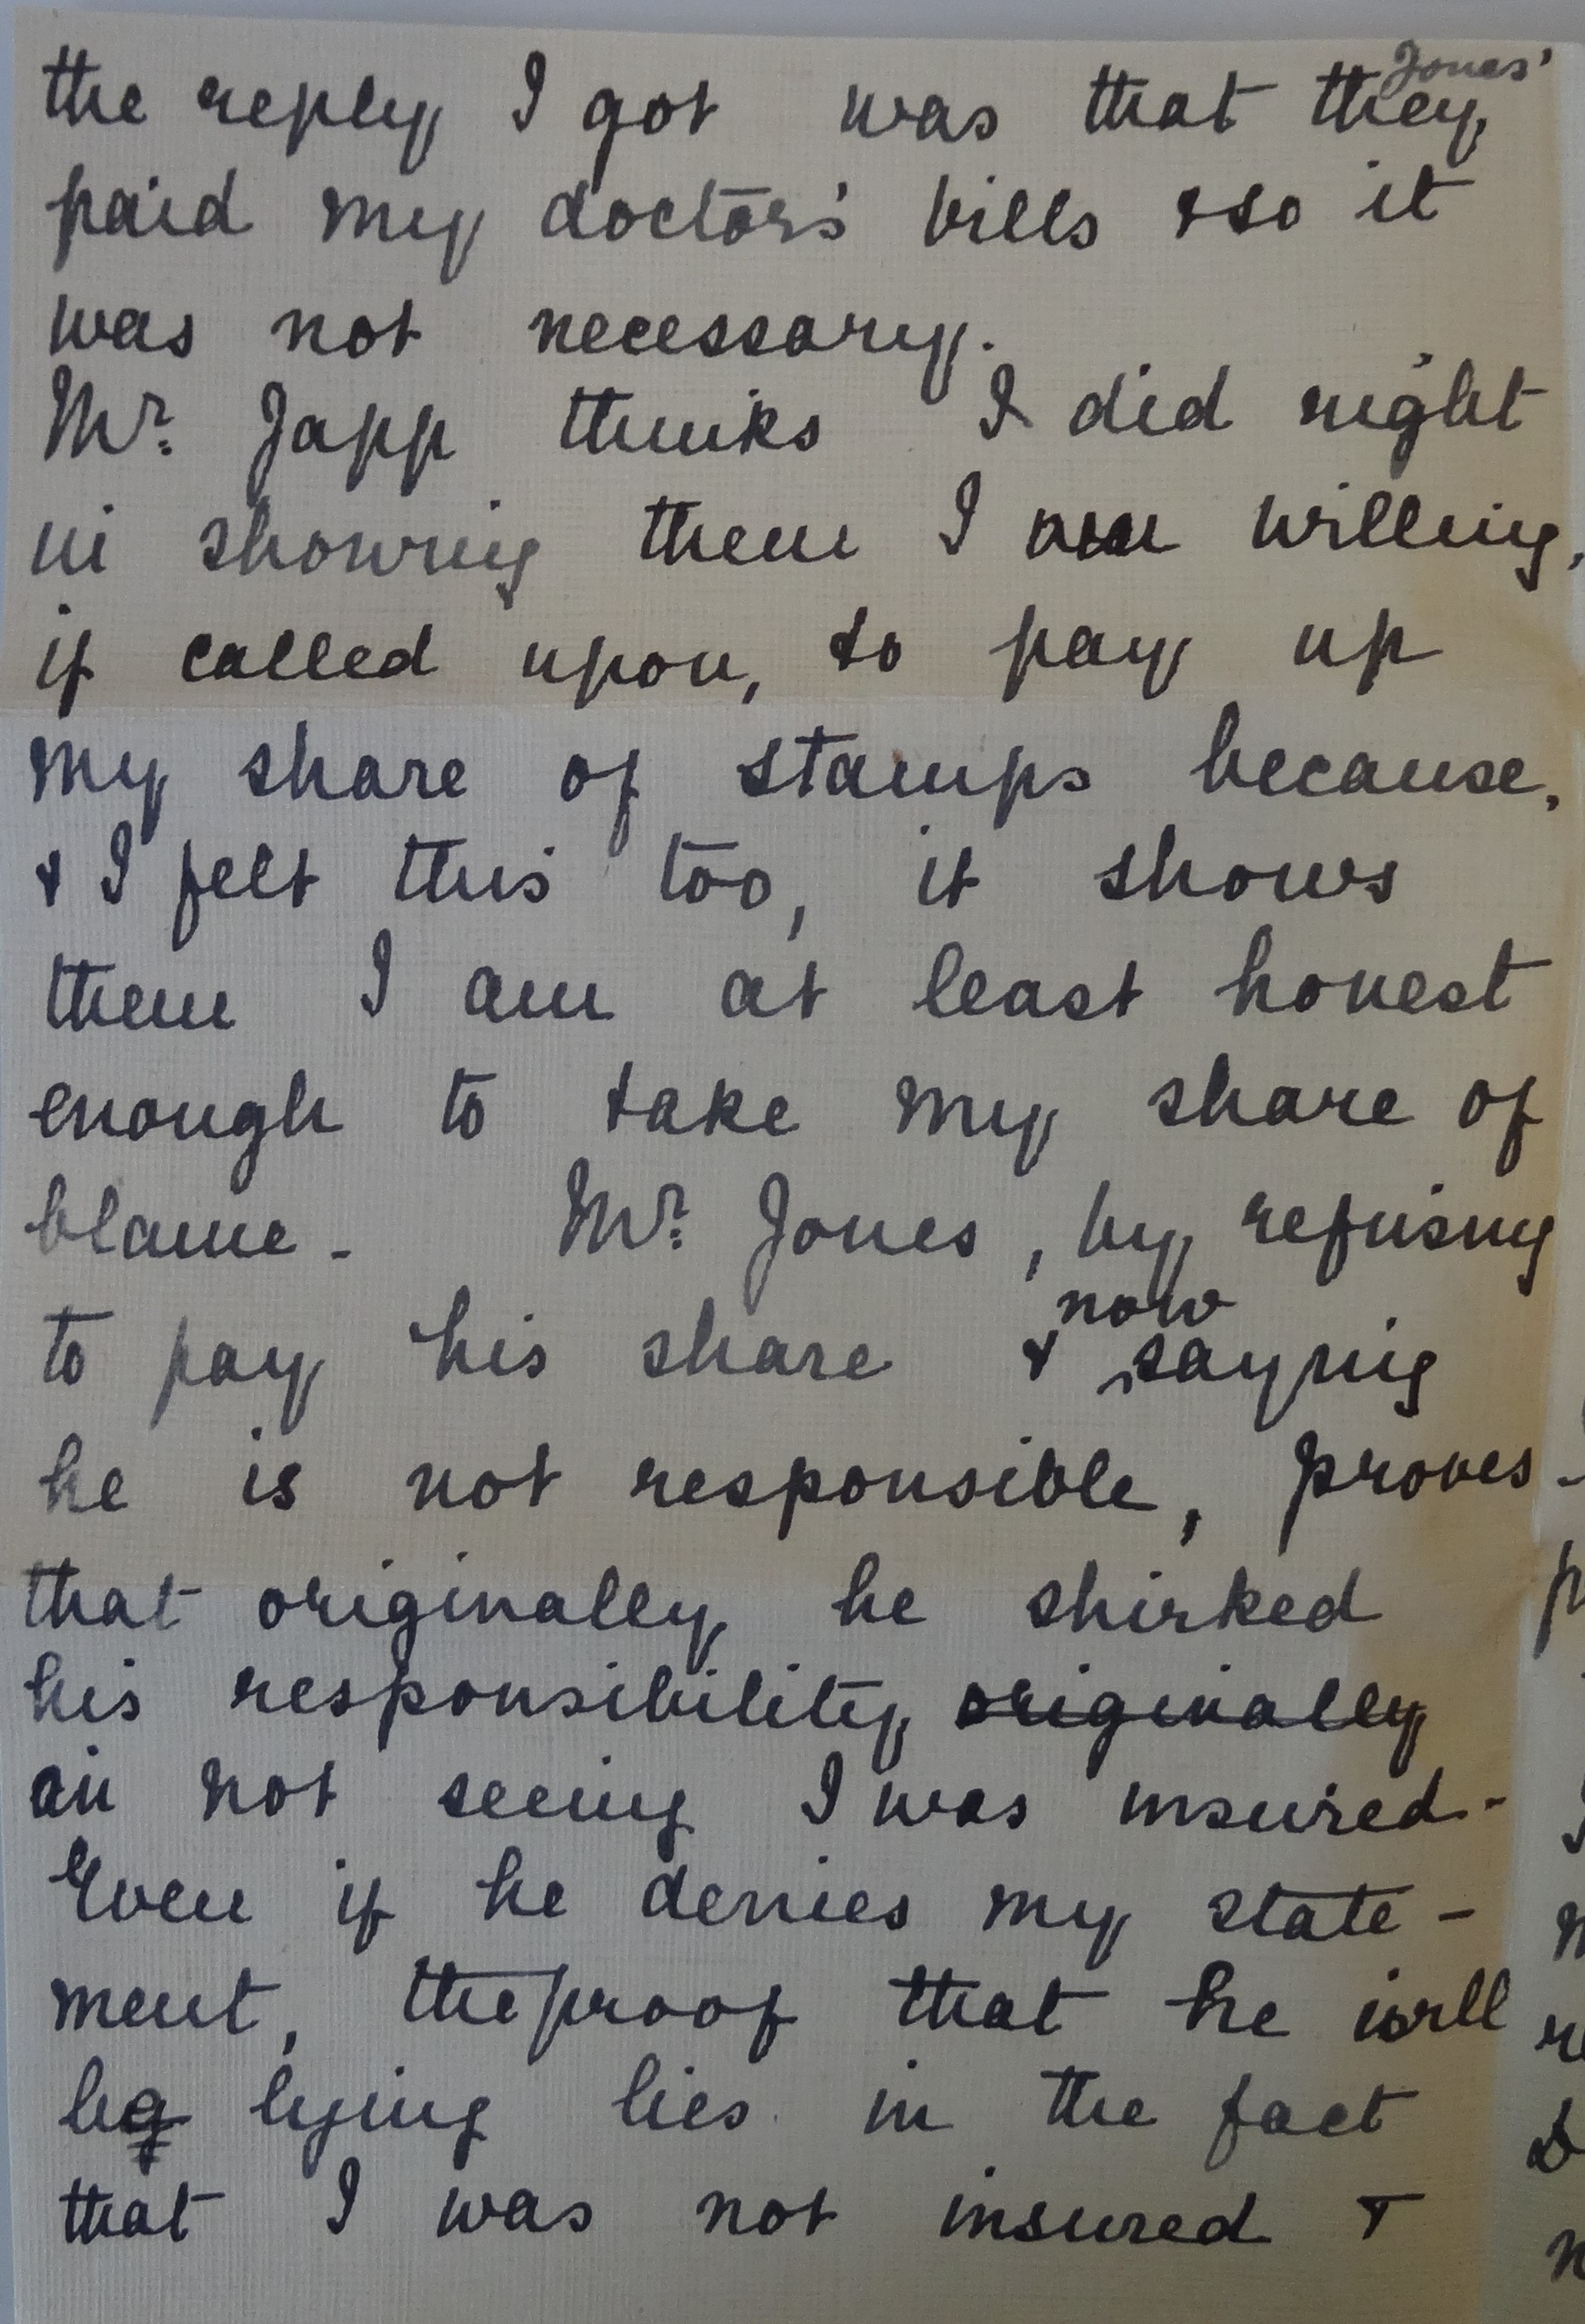 the reply I got was that they Jones'
paid my doctors' bills & so it
was not necessary.
Mr. Japp thinks I did right
in showing them I am willing,
if called upon, to pay up
my share of stamps because,
& I felt this too, it shows
them I am at least honest
enough to take my share of
blame - Mr. Jones, by refusing
to pay his share & now saying
he is not responsible, proves -
that originally he shirked
his responsibility originally
in not seeing I was insured -
Even if he denies my state-
ment, the proof that he will
be lying lies in the fact
that I was not insured &